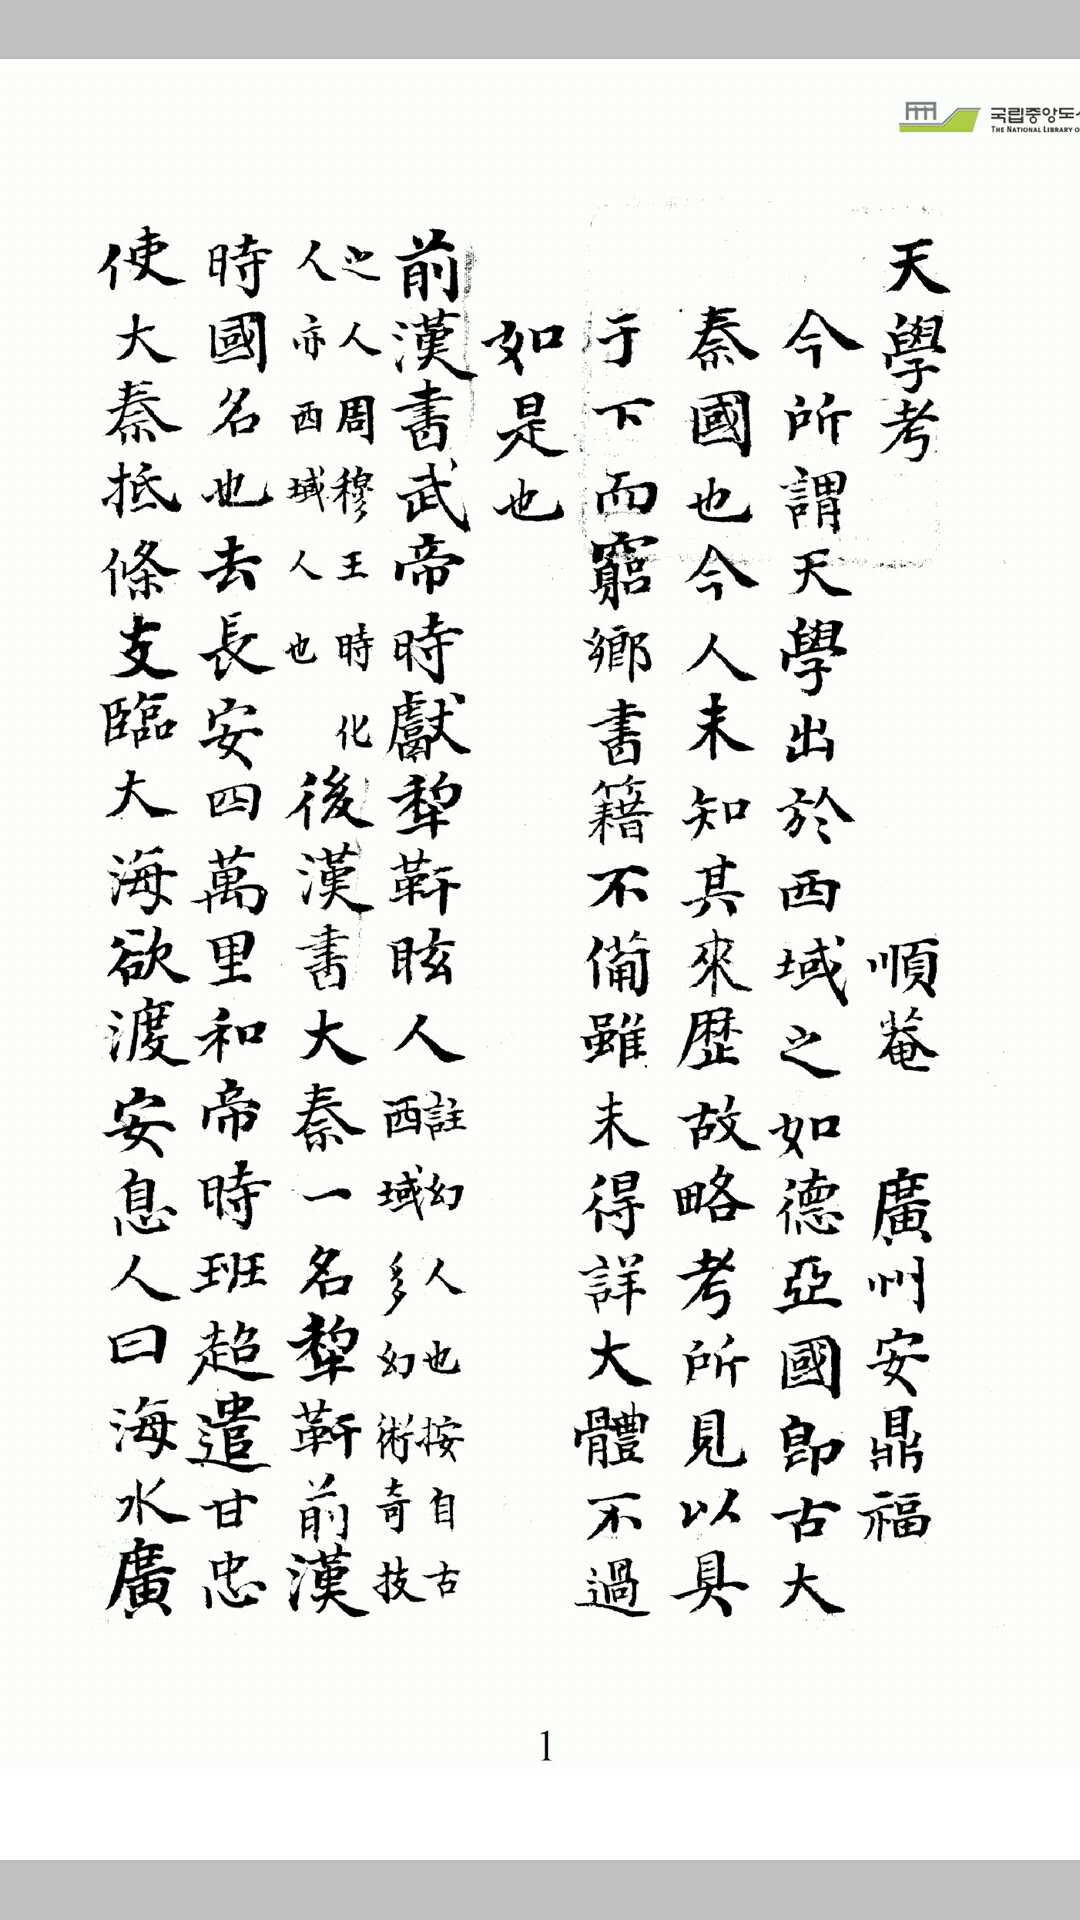 국립중앙도서
THE NATIONAL LIBRARY O
天學考 順菴 廣州安鼎福
今所謂天學出於西域之如德亞國卽古大
秦國也今人未知其來歷故略考所見以具
于下而窮鄉書籍不備雖未得詳大體不過
如是也
前漢書武帝時獻犂靬眩人
註幻人也按自古
西域多幻術奇技
之人周穆王時化
人亦西域人也
後漢書大秦一名犂靬前漢
時國名也去長安四萬里和帝時班超遣甘忠
使大秦抵條支臨大海欲渡安息人曰海水廣
1